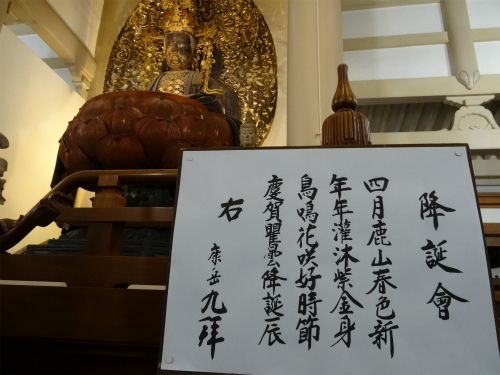 降誕會
四月鹿山春色新
年年灌沐紫金身
鳥鳴花咲好時節
慶賀瞿曇降誕辰
右
康岳九拜